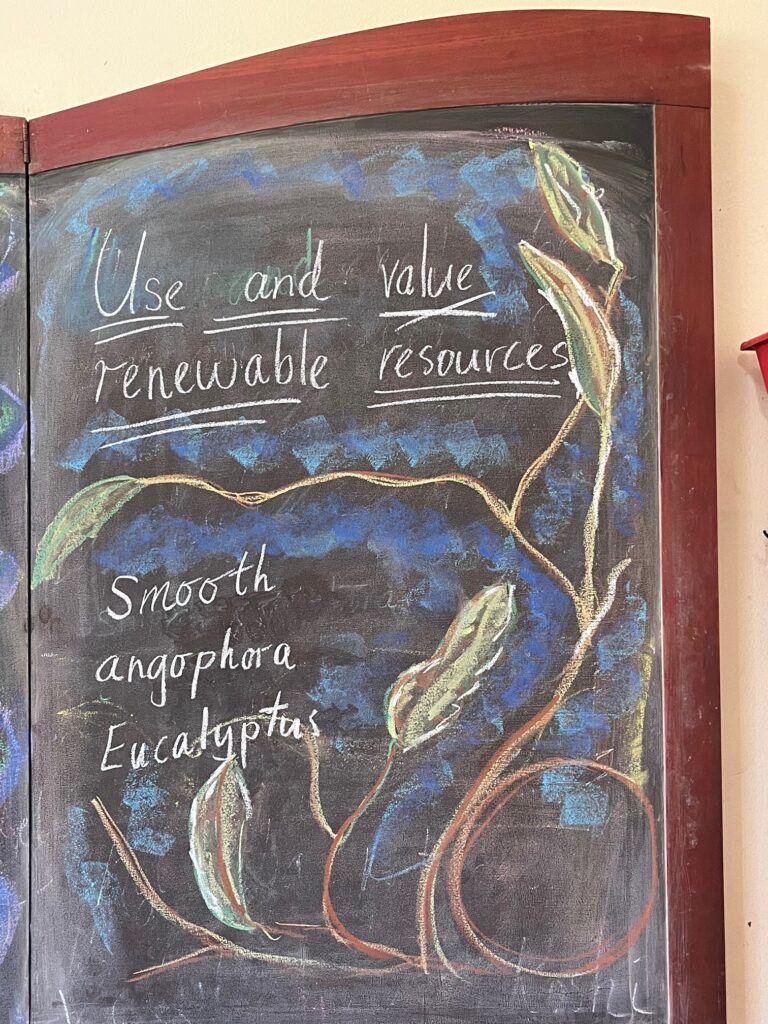 Use and value
renewable resources
Smooth
angophora
Eucalyptus